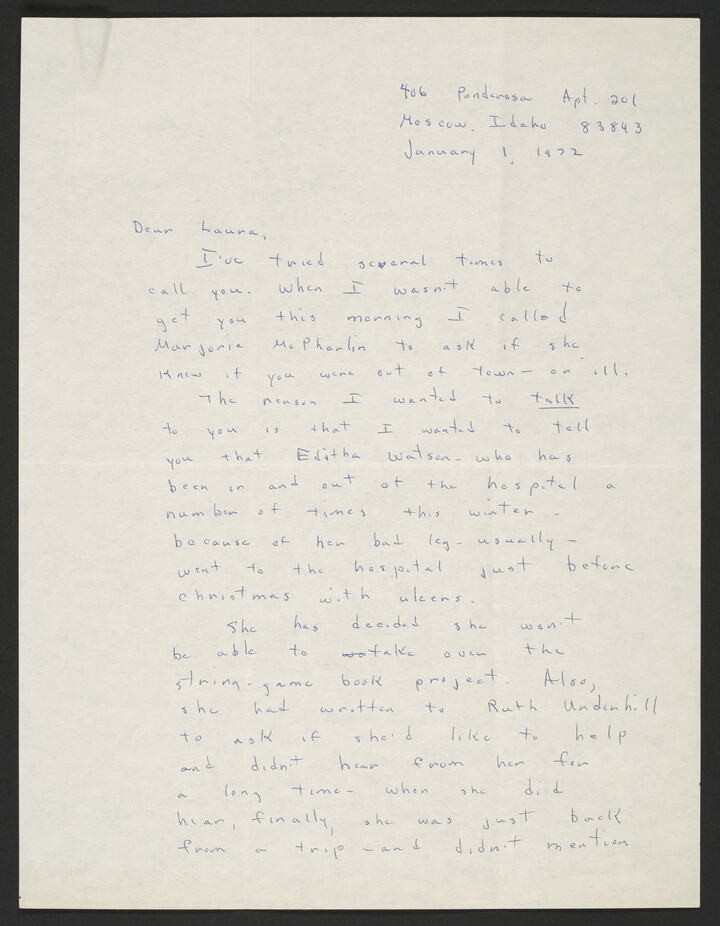 406 Ponderosa Apt. 201
Moscow, Idaho 83843
January 1, 1972
Dear Laura,
I've tried several times to
call you. When I wasn't able to
get you this morning I called
Marjorie McPharlin to ask if she
knew if you were out of town - or ill.
The reason I wanted to talk
to you is that I wanted to tell
you that Editha Watson - who has
been in and out of the hospital a
number of times this winter -
because of her bad leg - usually -
went to the hospital just before
Christmas with ulcers.
She has decided she won't
be able to take over the
string-game book project. Also,
she had written to Ruth Underhill
to ask if she'd like to help
and didn't hear from her for
a long time - when she did
hear, finally, she was just back
from a trip - and didn't mention